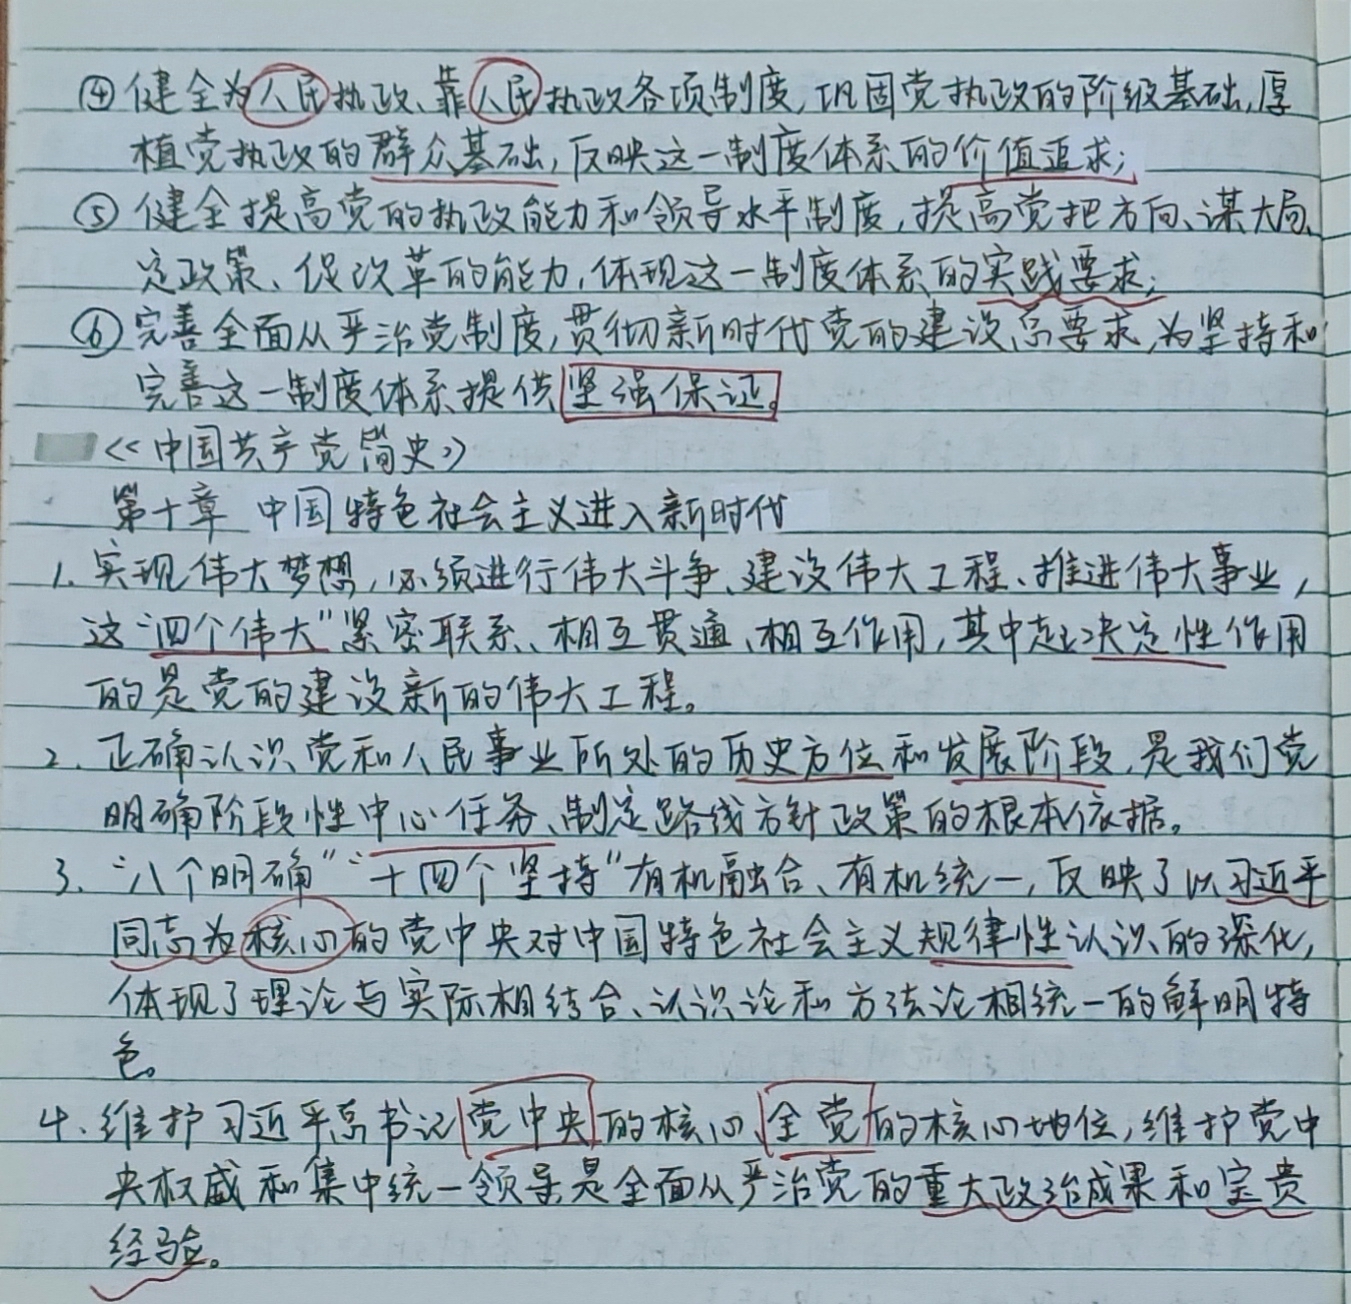 ④健全为人民执政、靠人民执政各项制度,巩固党执政的阶级基础,厚
植党执政的群众基础,反映这一制度体系的价值追求;
⑤健全提高党的执政能力和领导水平制度,提高党把方向、谋大局、
定政策、促改革的能力,体现这一制度体系的实践要求;
⑥完善全面从严治党制度,贯彻新时代党的建设总要求,为坚持和
完善这一制度体系提供坚强保证。
《中国共产党简史》
第十章 中国特色社会主义进入新时代
1.实现伟大梦想,必须进行伟大斗争、建设伟大工程、推进伟大事业,
这“四个伟大”紧密联系、相互贯通、相互作用,其中起决定性作用
的是党的建设新的伟大工程。
2.正确认识党和人民事业所处的历史方位和发展阶段,是我们党
明确阶段性中心任务、制定路线方针政策的根本依据。
3.“八个明确”“十四个坚持”有机融合、有机统一,反映了以习近平
同志为核心的党中央对中国特色社会主义规律性认识的深化,
体现了理论与实际相结合、认识论和方法论相统一的鲜明特
色。
4.维护习近平总书记党中央的核心、全党的核心地位,维护党中
央权威和集中统一领导是全面从严治党的重大政治成果和宝贵
经验。